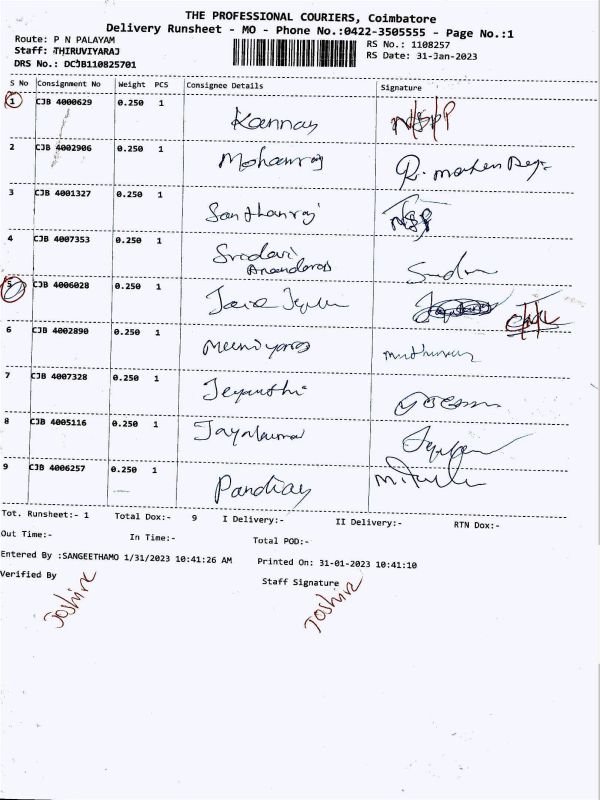 THE PROFESSIONAL COURIERS, Coimbatore
Delivery Runsheet - MO - Phone No.:0422-3505555 - Page No.:1
Route: P N PALAYAM
RS No.: 1108257
Staff: THIRUVIYARAJ
RS Date: 31-Jan-2023
DRS No.: DCJB110825701
S No Consignment No Weight PCS Consignee Details Signature
1 CJB 4000629 0.250 1
Kannay
2 CJB 4002906 0.250 1
Mohanraj
3 CJB 4001327 0.250 1
Santhanraj
4 CJB 4007353 0.250 1
Sridevi
5 CJB 4006028 0.250 1
6 CJB 4002890 0.250 1
7 CJB 4007328 0.250 1
Jeyanthi
8 CJB 4005116 0.250 1
Jayakumar
9 CJB 4006257 0.250 1
Pandiay
Tot. Runsheet:- 1 Total Dox:- 9 I Delivery:- II Delivery:- RTN Dox:-
Out Time:- In Time:- Total POD:-
Entered By :SANGEETHAMO 1/31/2023 10:41:26 AM Printed On: 31-01-2023 10:41:10
Verified By Staff Signature